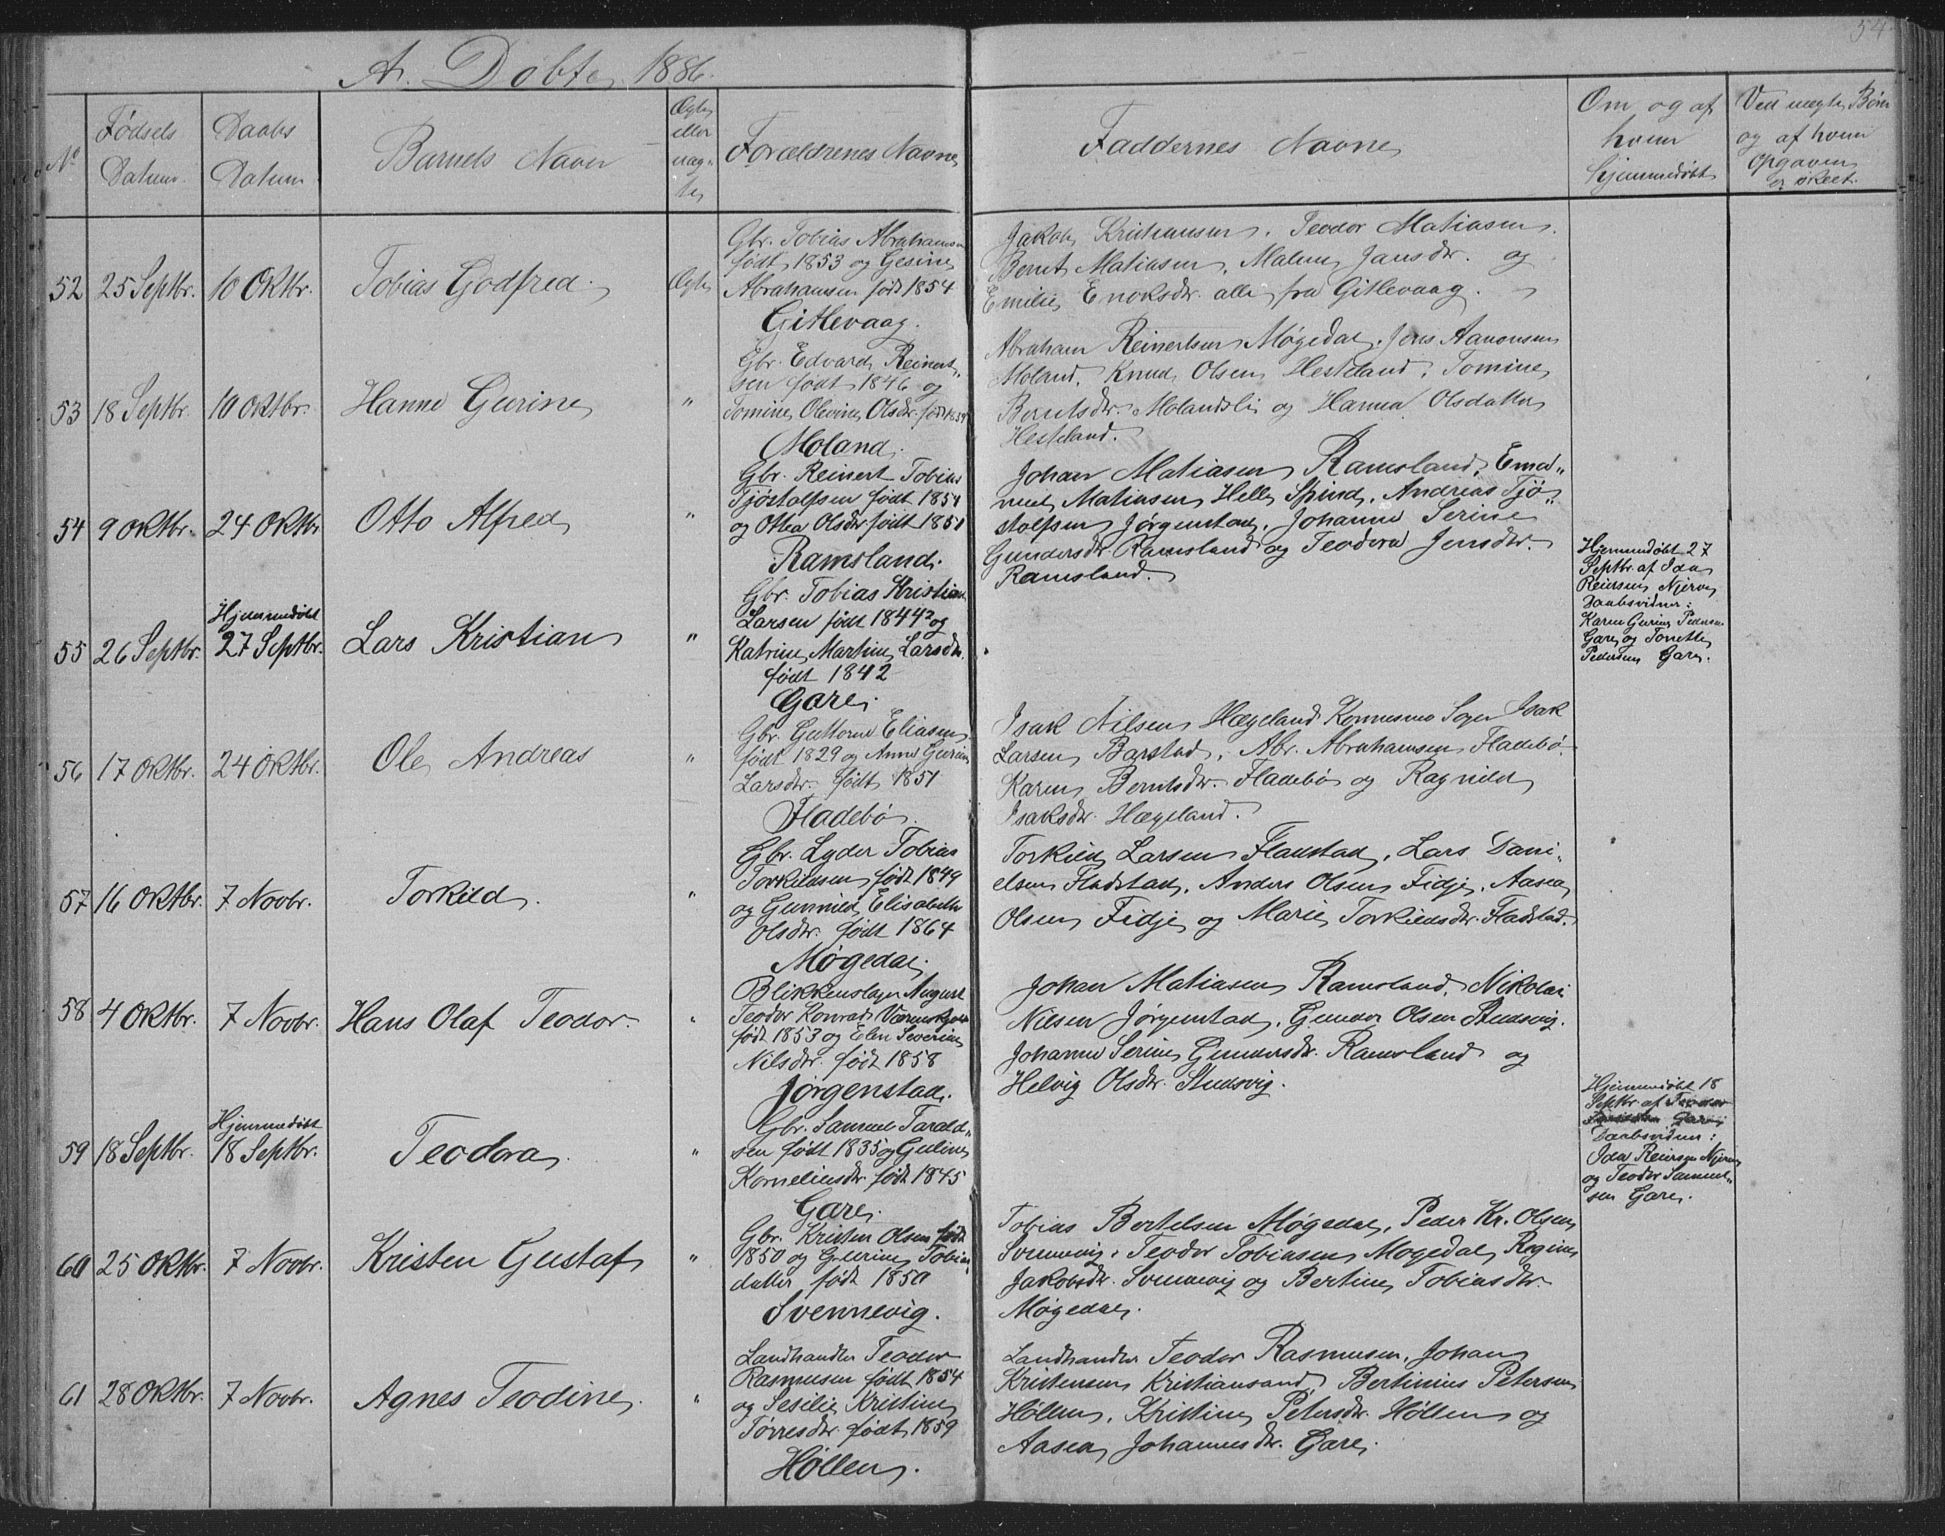 54
A. Døbte 1886.
No
Fødsels Datum.
Daabs Datum
Barnets Navn
Ægte eller uægte
Forældrenes Navne
Faddernes Navne
Om og af hvem hjemmedøbt
Ved uægte Børn og af hvem Opgaven er skeet.
52 25 Septbr. 10 Oktbr. Tobias Godfred. Ægte
Gbr. Tobias Abrahamsen
født 1853 og Gesine
Abrahamsen født 1854
Gitlevaag.
Jakob Kristiansen. Teodor Matiasen.
Bernt Matiasen, Malene Jansdtr. og
Emilie Enoksdtr. alle fra Gitlevaag.
53 18 Septbr. 10 Oktbr. Hanne Gurine "
Gbr. Edvard Reinert-
sen født 1846 og
Tomine Olevine Olsdtr. født
Moland.
Abraham Reinertsen Møgedal. Jens Aanonsen
Moland. Knud Olsen Hesteland. Tomine
Berntsdtr. Molandsli og Hanna Olsdatter
Hesteland.
54 9 Oktbr. 24 Oktbr. Otto Alfred "
Gbr. Reinert Tobias
Tjøstolfsen født 1851
og Othea Olsdtr født 1851
Ramsland.
Johan Matiasen Ramsland, Ema-
nuel Matiasen Helle Spind. Andreas Tjø-
stolfsen Jørgenstad. Johanne Serine
Gundersdtr. Ramsland og Teodora Jensdtr.
Ramsland.
55 26 Septbr. Hjemmedøbt
27 Septbr. Lars Kristian "
Gbr. Tobias Kristian
Larsen født 1844 og
Katrine Martine Larsdtr.
født 1842
Gare.
Hjemmedøbt 27
Septbr. af Ida
Reiersen Njerve
Daabsvidner:
Karen Gurine Pedersen
Gare og Tonette
Pedersen Gare.
56 17 Oktbr. 24 Oktbr. Ole Andreas "
Gbr. Guttorm Eliasen
født 1829 og Anne Gurine
Larsdtr. født 1851
Fladebø.
Isak Nilsen Hægeland Konnesmo Sogn Isak
Larsen Barstad. Abr. Abrahamsen Fladebø
Karen Berntsdtr. Fladebø og Ragnild
Isaksdtr. Hægeland.
57 16 Oktbr. 7 Novbr. Torkild. "
Gbr. Lyder Tobias
Torkildsen født 1849
og Gunnild Elisabeth
Olsdtr. født 1864
Møgedal.
Torkild Larsen Fladstad. Lars Dani-
elsen Fladstad. Anders Olsen Fidje. Aasea
Olsen Fidje og Marie Torkildsdtr. Fladstad.
58 4 Oktbr. 7 Novbr. Hans Olaf Teodor. "
Blikkenslager August
Teodor Konrad
født 1853 og Elen Severine
Nilsdtr. født 1858
Jørgenstad.
Johan Matiasen Ramsland. Nikolai
Nilsen Jørgenstad. Gunder Olsen Studsvig.
Johanne Serine Gundersdtr. Ramsland og
Helvig Olsdtr. Studsvig.
59 18 Septbr. Hjemmedøbt
18 Septbr. Teodora. "
Gbr. Samuel Tarald-
sen født 1835 og Guline
Korneliusdtr. født 1845
Gare.
Hjemmedøbt 18
Septbr. af Teodor
Gare
Daabsvidner:
Ida Reiersen Njerve
og Teodor Samuel-
sen Gare.
60 25 Oktbr. 7 Novbr. Kristen Gustaf "
Gbr. Kristen Olsen født
1850 og Gurine Tobias-
datter født 1850
Svennevig.
Tobias Bertelsen Møgedal, Peder Kr. Olsen
Svennevig. Teodor Tobiasen Møgedal, Regine
Jakobsdtr. Svennevig og Bertine Tobiasdtr.
Møgedal.
61 28 Oktbr. 7 Novbr. Agnes Teodine. "
Landhandler Teodor
Rasmusen født 1854
og Sesilie Kristine
Tørresdtr. født 1859
Høllen.
Landhandler Teodor Rasmusen. Johan
Kristensen Kristiansand, Bertinius Petersen
Høllen. Kristine Petersdtr. Høllen og
Aasea Johannesdtr. Gare.